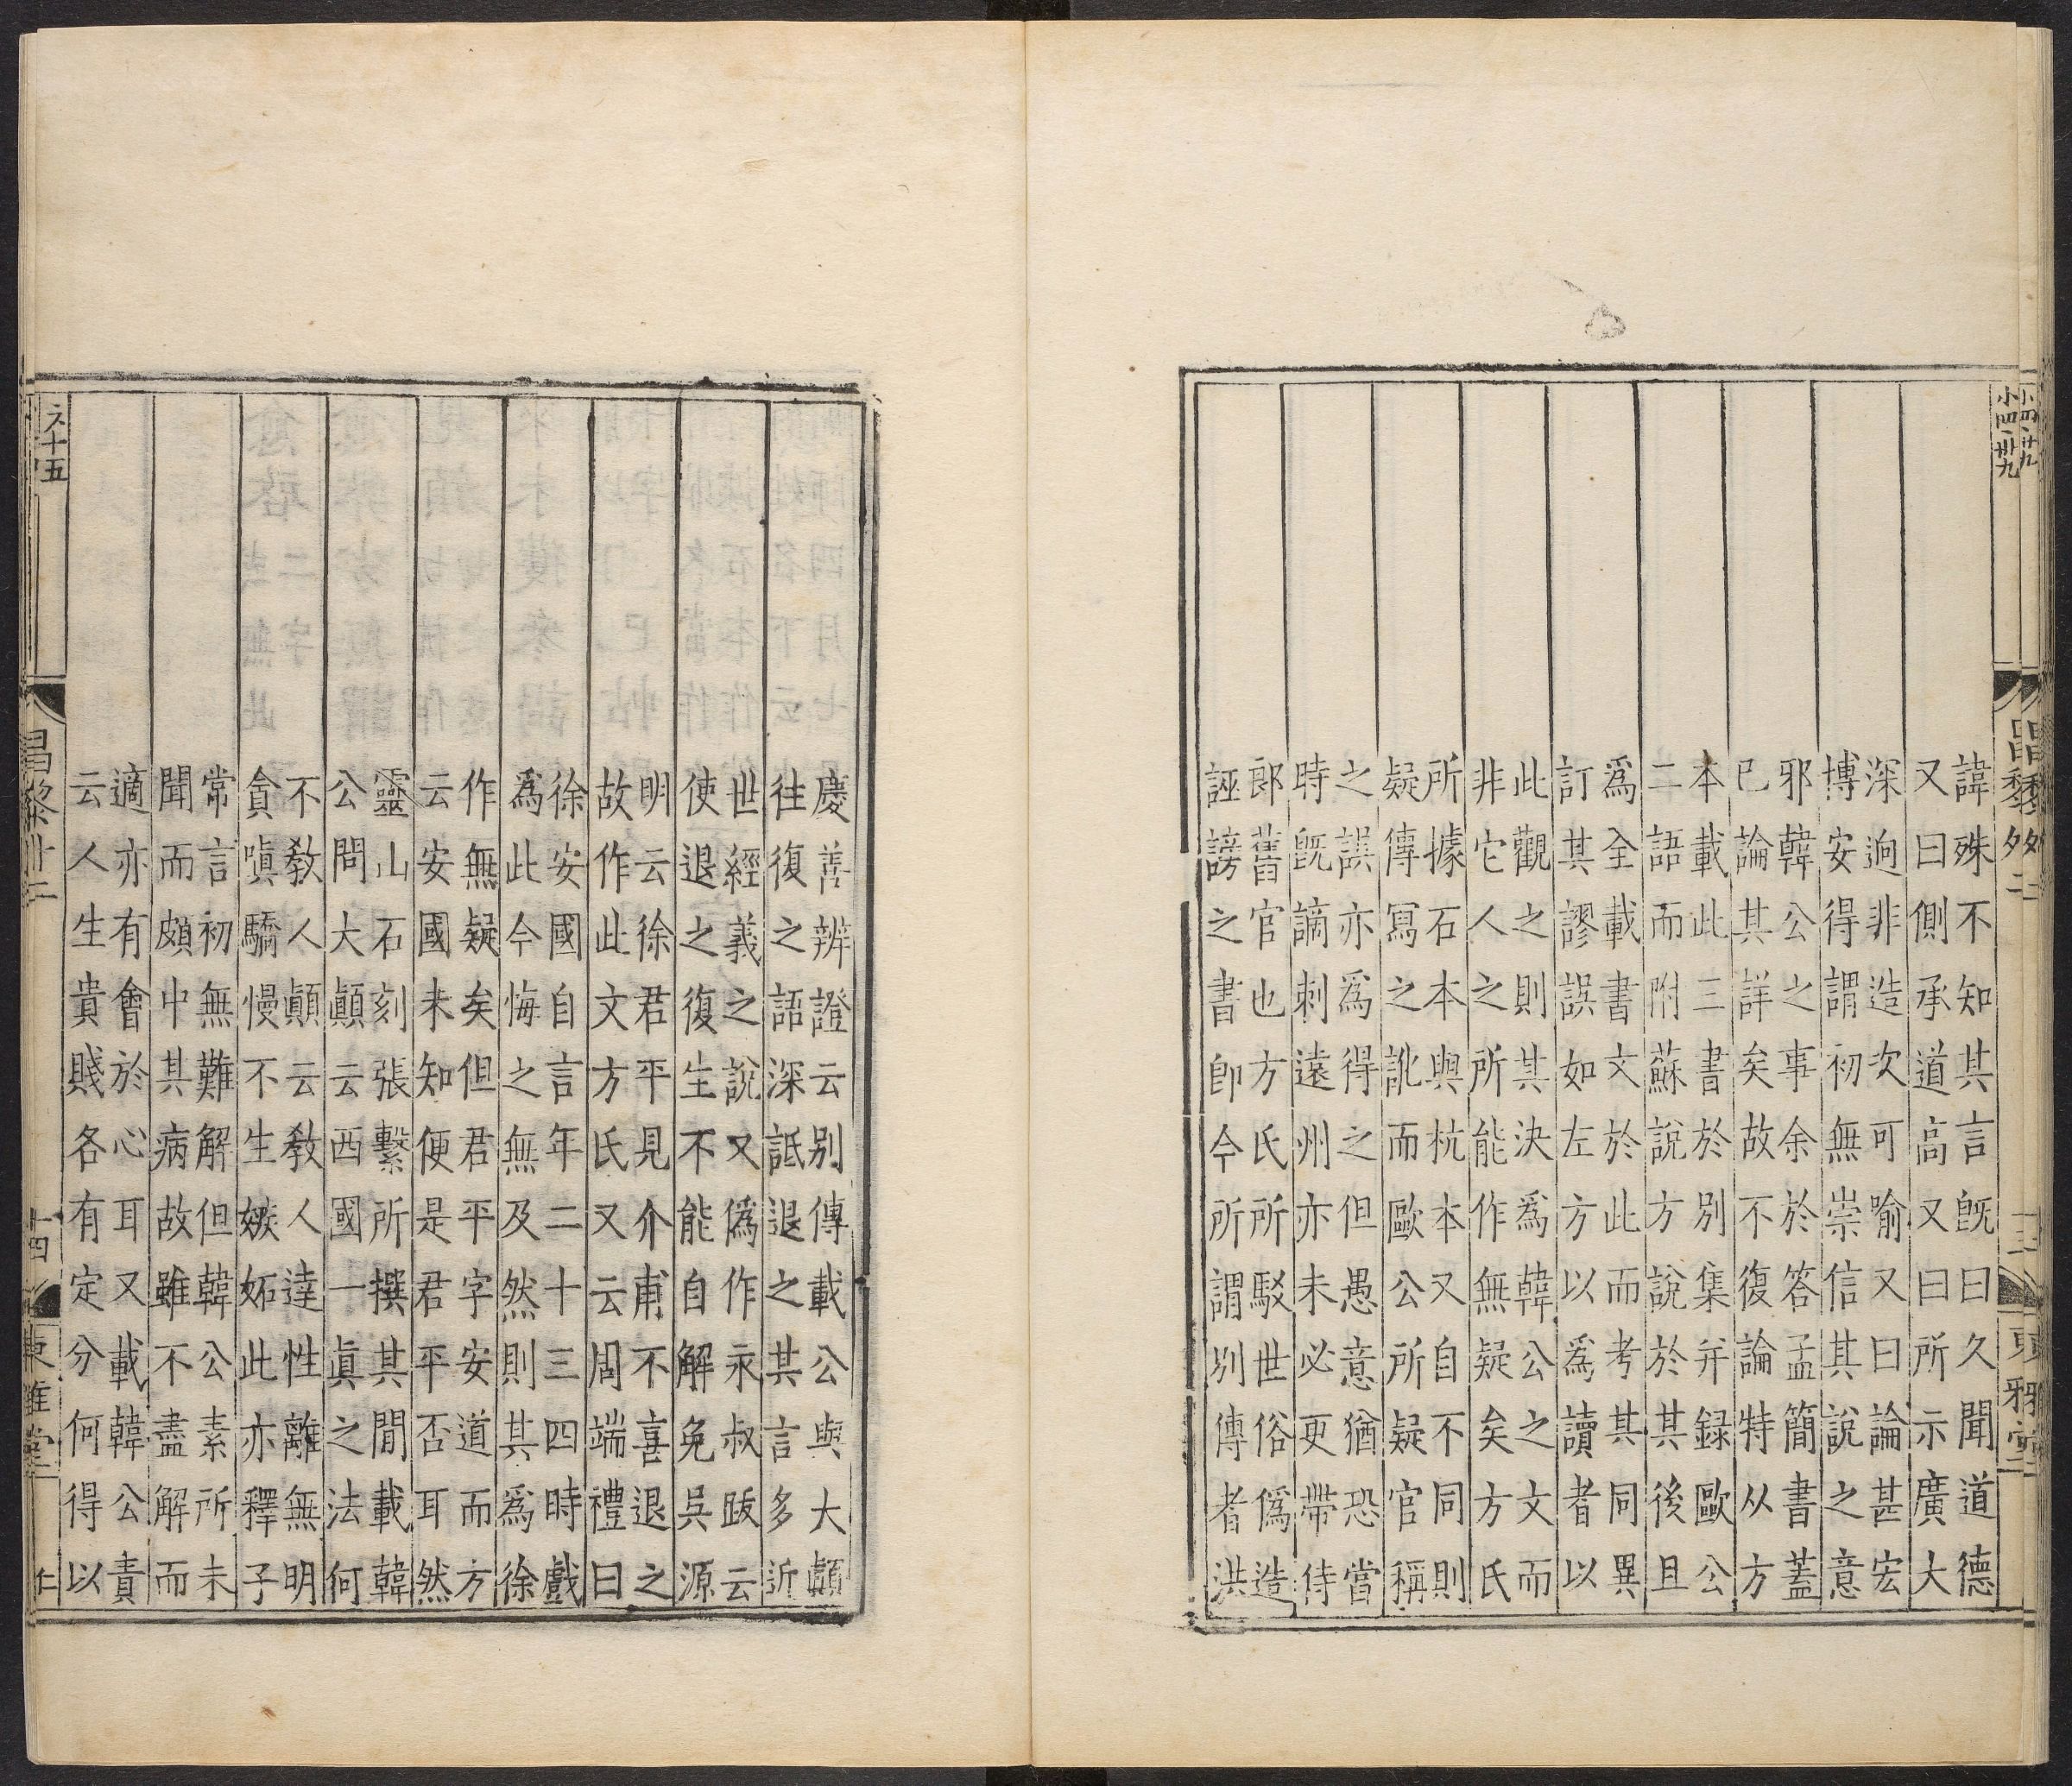 小四卅九
昌黎外二
東雅堂
諱殊不知其言旣曰久聞道德
又曰側承道高又曰所示廣大
深逈非造次可喻又曰論甚宏
博安得謂初無崇信其說之意
邪韓公之事余於答孟簡書蓋
已論其詳矣故不復論特从方
本載此三書於別集幷録歐公
二語而附蘇說方說於其後且
爲全載書文於此而考其同異
訂其謬誤如左方以爲讀者以
此觀之則其決爲韓公之文而
非它人之所能作無疑矣方氏
所據石本與杭本又自不同則
疑傳寫之訛而歐公所疑官稱
之誤亦爲得之但愚意猶恐當
時旣謫刺遠州亦未必更帶侍
郎舊官也方氏所駁世俗僞造
誣謗之書卽今所謂別傳者洪
慶善辨證云别傳載公與大顚
往復之語深詆退之其言多近
世經義之說又僞作永叔跋云
使退之復生不能自解免吳源
明云徐君平見介甫不喜退之
故作此文方氏又云周端禮曰
徐安國自言年二十三四時戲
爲此今悔之無及然則其爲徐
作無疑矣但君平字安道而方
云安國未知便是君平否耳然
靈山石刻張繫所撰其閒載韓
公問大顚云西國一眞之法何
不敎人顚云敎人達性離無明
貪嗔驕慢不生嫉妬此亦釋子
常言初無難解但韓公素所未
聞而頗中其病故雖不盡解而
適亦有會於心耳又載韓公責
云人生貴賤各有定分何得以
昌黎卄二
十四
東雅堂
仁